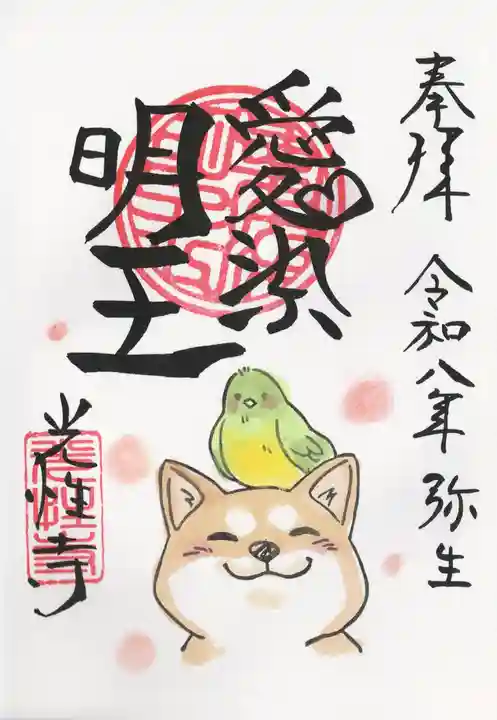 奉拝 令和八年 弥生
愛染
明王
光性寺